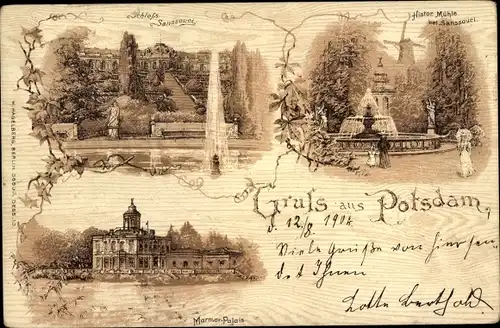 Schloß
Sanssouci.
Histor. Mühle
bei Sanssouci.
Gruß aus Potsdam,
d. 12/8 1904
Viele Grüße von
det Ihnen
Lotte Berthold.
Marmor-Palais